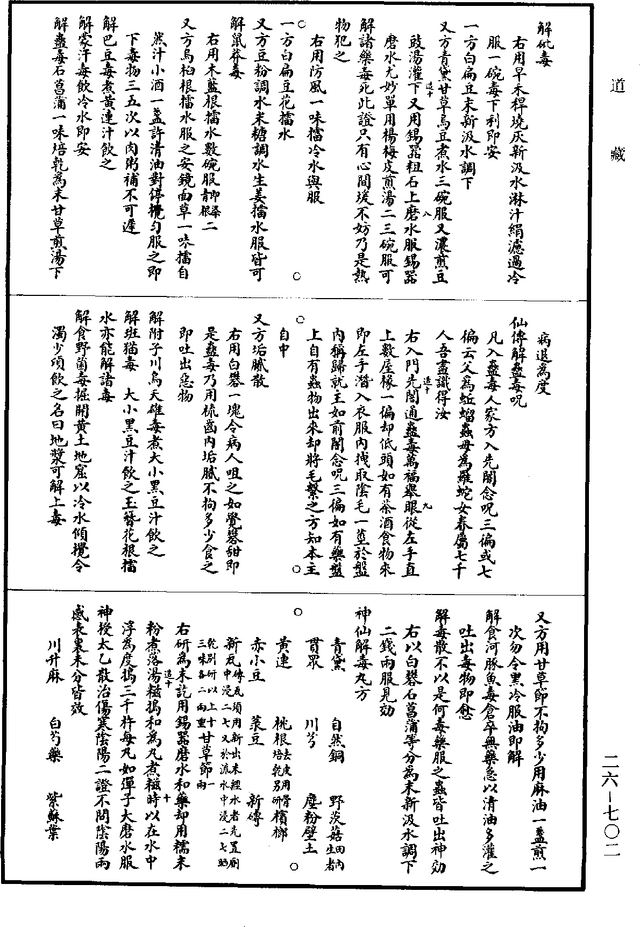 道藏
解砒毒
右用早禾稈燒灰新汲水淋汁絹濾過冷
服一碗毒下利即安
一方白扁豆末新汲水調下
又方青黛甘草烏豆煮水三碗服又濃煎豆
豉湯灌下又用錫器粗石上磨水服錫器
磨水尤妙單用楊梅皮煎湯二三碗服可
解諸藥毒死此證只有心間煖不妨乃是熱
物犯之
右用防風一味擂冷水與服
一方白扁豆花擂水
又方豆粉調水米糖調水生姜擂水服皆可
解鼠莽毒
右用木藍根擂水數碗服即染青根二
又方烏桕根擂水服之安鏡面草一味擂自
然汁小酒一盞許清油對停攪勻服之即
下毒物三五次以肉粥補不可遲
解巴豆毒煮黃連汁飲之
解蒙汗毒飲冷水即安
解蠱毒石菖蒲一味焙乾為末甘草煎湯下
病退為度
仙傳解蠱毒呪
凡入蠱毒人家方入先闇念呪三徧或七
徧云父為蚯蚓蟲母為羅蛇女眷屬七千
人吾盡識得汝
右入門先闇通蠱毒萬福舉眼從左手直
上數屋椽一徧却低頭如有茶酒食物來
即左手潛入衣服內拽取陰毛一莖於盤
內稱歸就主如前闇念呪三徧如有藥盤
上自有蟲物出來却將毛繫之方知本主
自中
又方垢膩散
右用白礬一塊令病人咀之如覺礬甜即
是蠱毒乃用梳齒內垢膩不拘多少食之
即吐出惡物
解附子川烏天雄毒煮大小黑豆汁飲之
解斑猫毒　大小黑豆汁飲之玉簪花根擂
水亦能解諸毒
解食野菌毒掘開黃土地窟以冷水傾攪令
濁少頃飲之名曰地漿可解上毒
又方用甘草節不拘多少用麻油一盞煎一
次勿令黑冷服油即解
解食河豚魚毒倉卒無藥急以清油多灌之
吐出毒物即愈
解毒散不以是何毒藥服之蟲皆吐出神効
右以白礬石菖蒲等分為末新汲水調下
二錢兩服見効
神仙解毒丸方
青黛　自然銅　野茨菇
貫眾　川芎　塵粉壁土
黃連　桃根去皮用骨焙乾別研　檳榔
赤小豆　菉豆　新磚
新瓦　甘草節
右研為末訖用錫器磨水和藥却用糯米
粉煮落湯糍搗和為丸煮糍時以在水中
浮為度搗三千杵每丸如彈子大磨水服
神授太乙散治傷寒陰陽二證不問陰陽兩
感表裏未分皆效
川升麻　白芍藥　紫蘇葉
二六—七〇二